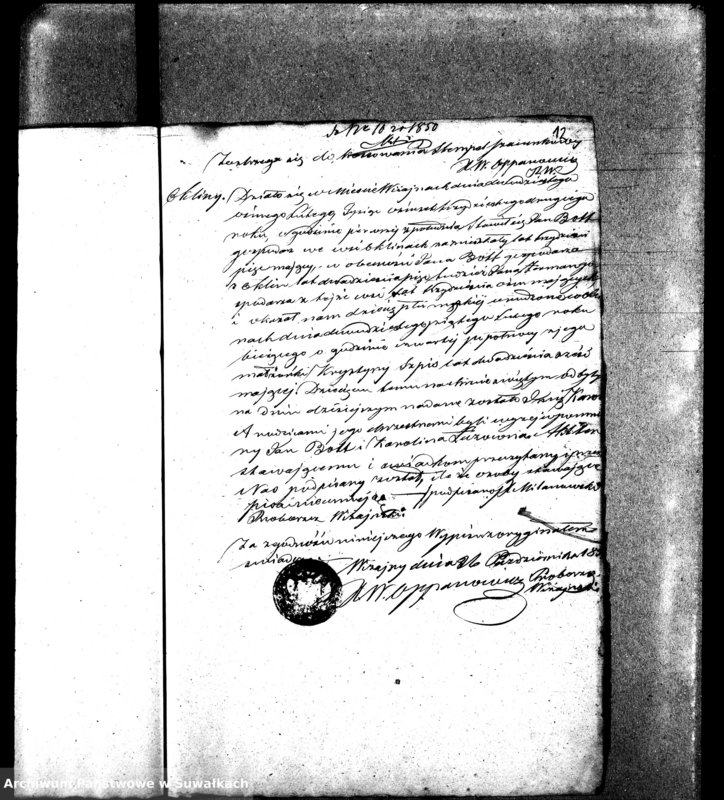 12
1850
Zastrzega się do Stempel szacunkowy
X. W. Oppanowicz
Okliny. Działo się w Mieście Wiżajnach dnia dwudziestego
ósmego Lutego Tysiąc ośmset trzydziestego drugiego
roku, o godzinie pierwszej z południa Stawił się Jan Bott
gospodarz we wsi Oklinach zamieszkały lat trzydzieści
pięć mający, w obecności Jana Bott gospodarza
z Oklin lat dwadzieścia pięć tudzież Jana
gospodarza z tejże wsi lat trzydzieści ośm mających
i okazał nam dziecię płci męzkiej urodzone w Okli
nach dnia dwudziestego piątego Lutego roku
bieżącego o godzinie czwartej po północy z jego
małżonki Krystyny Szpic lat dwadzieścia sześć
mającej. Dziecięciu temu na Chrzcie świętym odbytym
na dniu dzisiejszym nadane zostało Imię Karol
A rodzicami jego chrzestnymi byli wyżej wspomnio
ny Jan Bott i Karolina Akt ten
stawającemu i świadkom przeczytany i przez
Nas podpisany został, ile że osoby stawające
pisać nie umieją. podpisano X. Milanowski
Proboszcz Wiżajński
Za zgodność niniejszego Wypisu z oryginałem
Wiżajny dnia 26 Października
X W Oppanowicz Proboszcz
Wiżajński
Archiwum Państwowe w Suwałkach